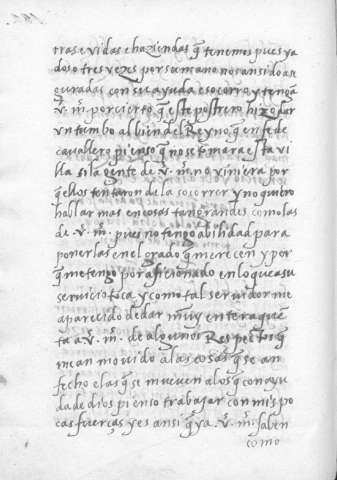 tras e vidas e haziendas q̃ tenemos pues ya
dos o tres vezes por su mano nos an sido as
guradas con su ayuda e socorro y tenga
v. m. por cierto q̃ este postrero hizo dar
vn tumbo al bien del Reyno q̃ en fe de
cavallero pienso q̃ no se tomara esta vi
lla si la gente de v. m. no viniera por
q̃ ellos tentaron de la socorrer y no quiero
hablar mas en cosas tan grandes como las
de v. m. pues no tengo abilidad para
ponerlas en el grado q̃ merecen y por
q̃ me tengo por aficionado en lo que a su
servicio toca y como tal servidor me
a parecido de dar muy entera quen
ta a v. m. de algunos Respectos q̃
me an movido a las cosas q̃ se an
fecho e las q̃ se mueven a los q̃ con ayu
da de dios pienso trabajar con mis po
cas fuerças y es ansi q̃ ya v. m. saben
como